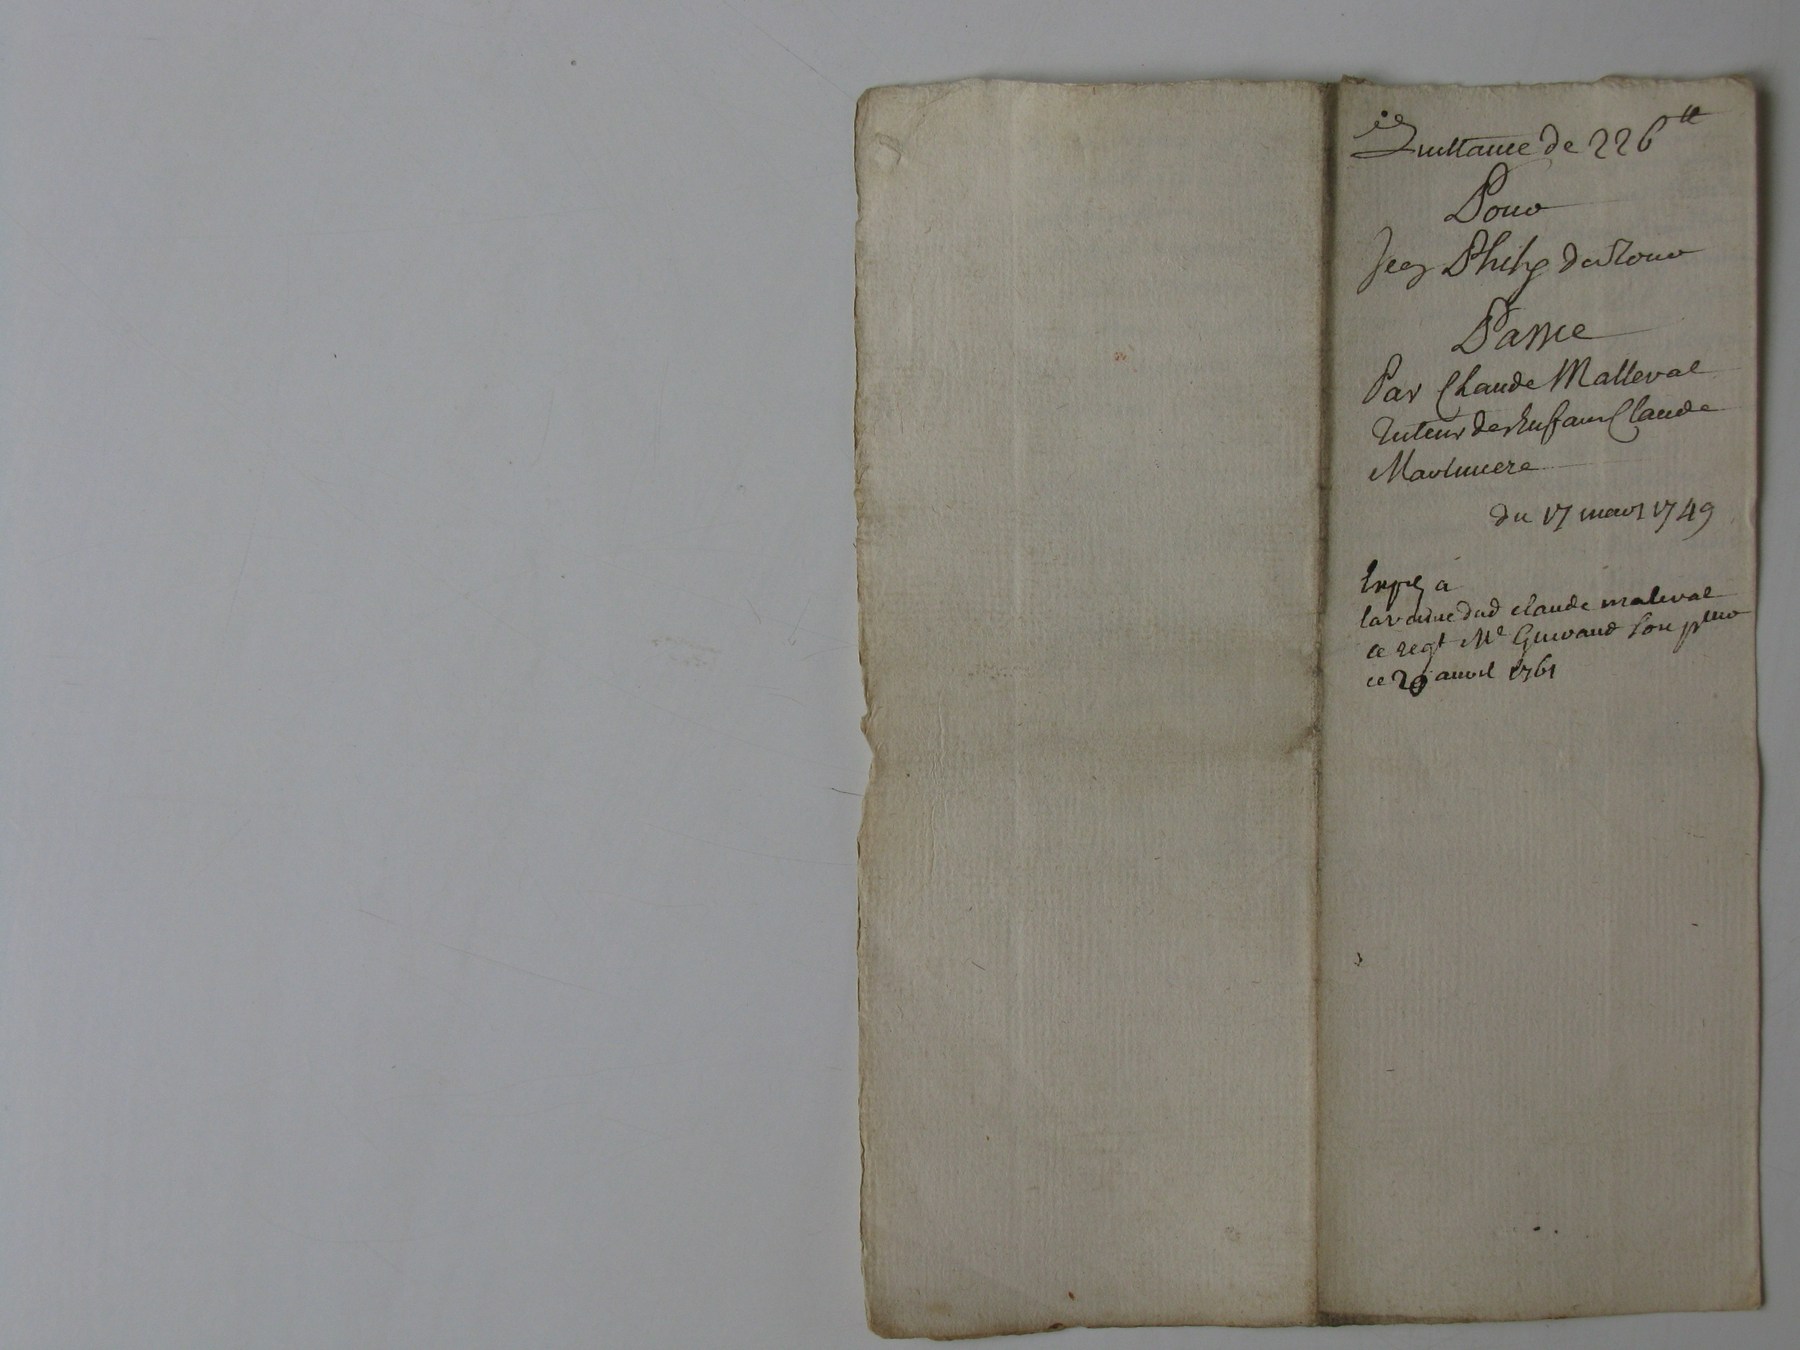 Quittance de 226 tt
Pour
Jean Philip
Passée
Par Claude Malleval
Tuteur des Enfans Claude
Marliniere
du 17 mars 1749
Expé a
la veuve dud claude maleval
ce reqt Me Guiraud son pror
ce 29 avril 1761